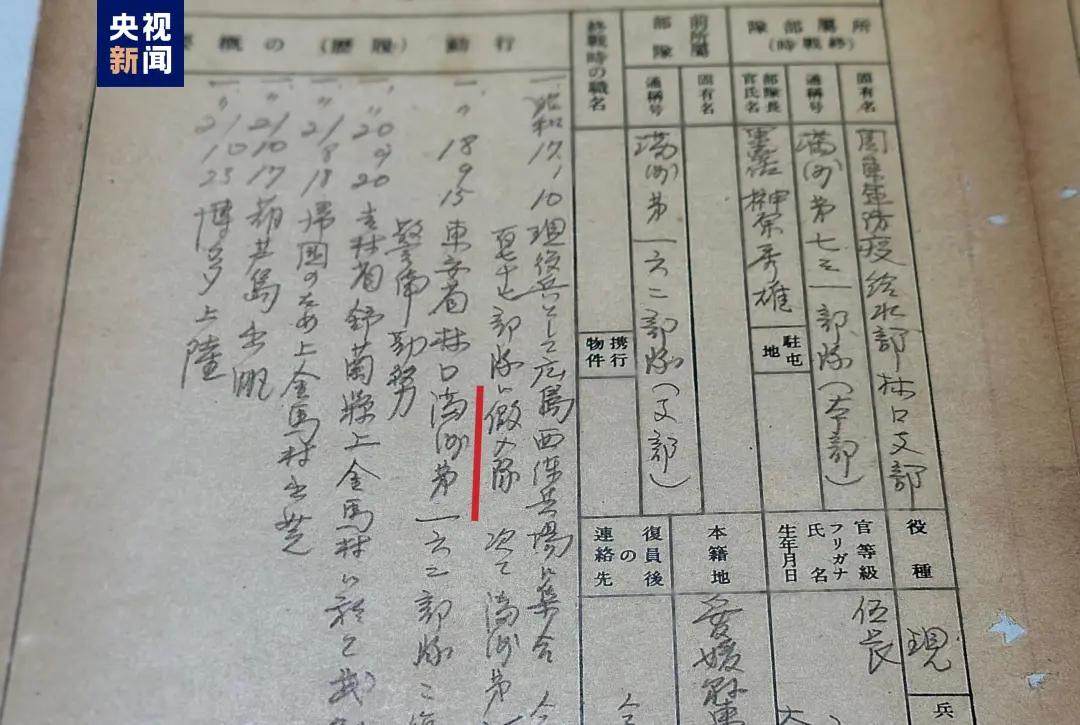 央视
新闻
所屬部隊
(終戰時)
固有名
関東軍防疫給水部林口支部
通稱号
満洲第七三一部隊(本部)
部隊長
官氏名
榊原秀雄
駐屯地
前所屬部隊
固有名
通稱号
満洲第一六二部隊(支部)
終戰時の職名
携行物件
役種
現
兵
官等級
伍長
フリガナ
氏名
生年月日
本籍地
愛媛縣東
復員後の連絡先
行動(履歴)の概要
一、昭和17,10 現役兵として広島西練兵場に集合
部隊に仮入隊 次で満洲第
一、〃 18 9 15 東安省林口満洲第一六二部隊ニ
警備勤務
一、〃 20 9 20 吉林省舒蘭縣上金馬村に於て武
一、〃 21 8 18 帰国のため上金馬村出発
一、〃 21 10 17 葫芦島出帆
一、〃 21 10 23 博多上陸